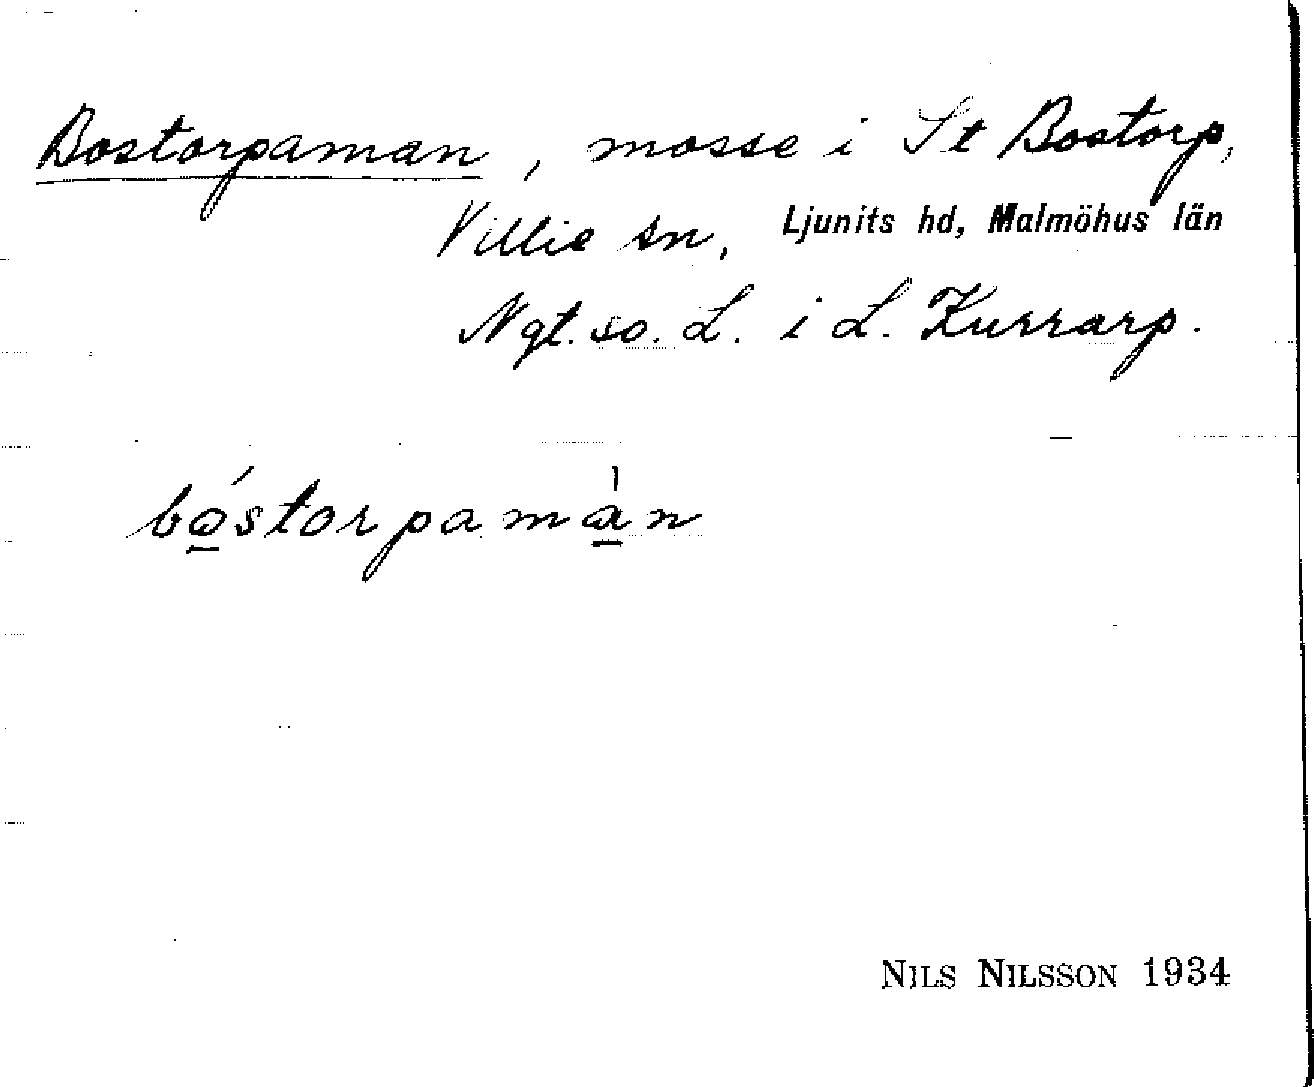 Bostorpaman, mosse i St Bostorp,
Villie sn, Ljunits hd, Malmöhus län
Ngt. so. L. i L. Kurrarp.
bó̲storpamà̲n
NILS NILSSON 1934